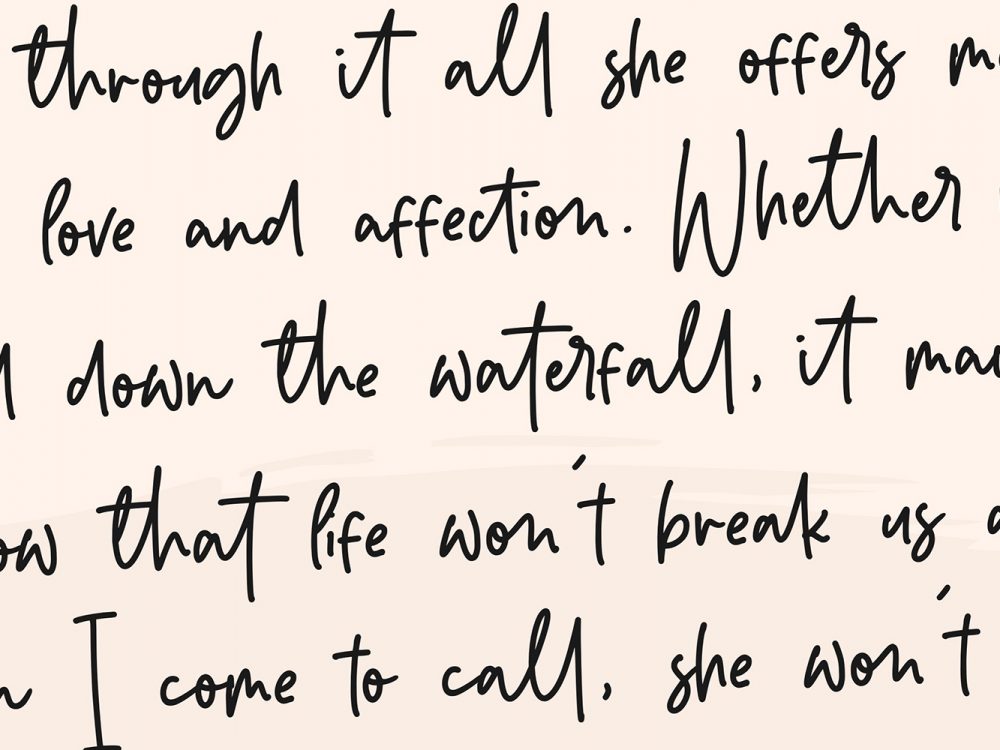 through it all she offers
love and affection. Whether
down the waterfall, it
that life won't break us
I come to call, she won't